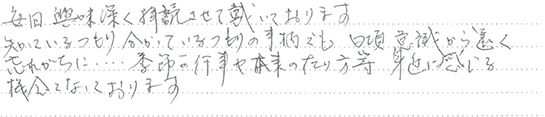 毎日 興味深く拝読させて戴いております
知っているつもり 分かっているつもりの事柄でも 日頃意識から遠く
忘れがちに・・・・季節の行事や本来の在り方等 身近に感じる
機会となっております